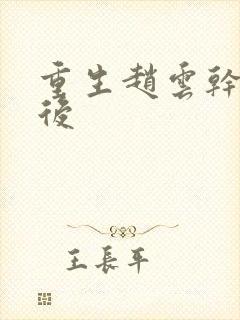 重生趙雲幹
後
王長平